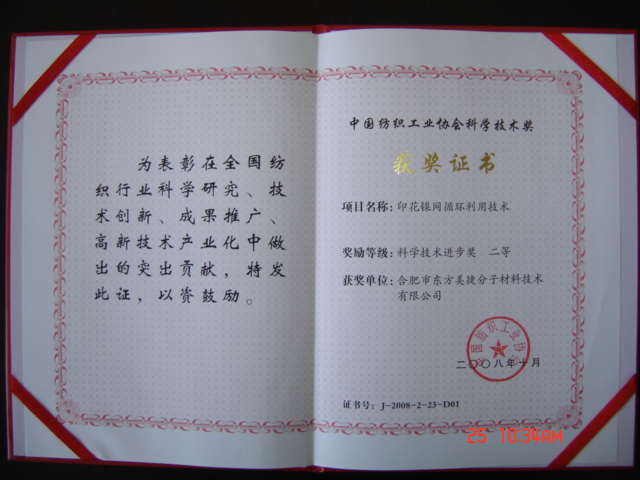 为表彰在全国纺
织行业科学研究、技
术创新、成果推广、
高新技术产业化中做
出的突出贡献，特发
此证，以资鼓励。
中国纺织工业协会科学技术奖
获奖证书
项目名称：印花镍网循环利用技术
奖励等级：科学技术进步奖 二等
获奖单位：合肥市东方美捷分子材料技术
有限公司
中国纺织工业协会
二〇〇八年十月
证书号：J-2008-2-23-D01
25 10:34AM